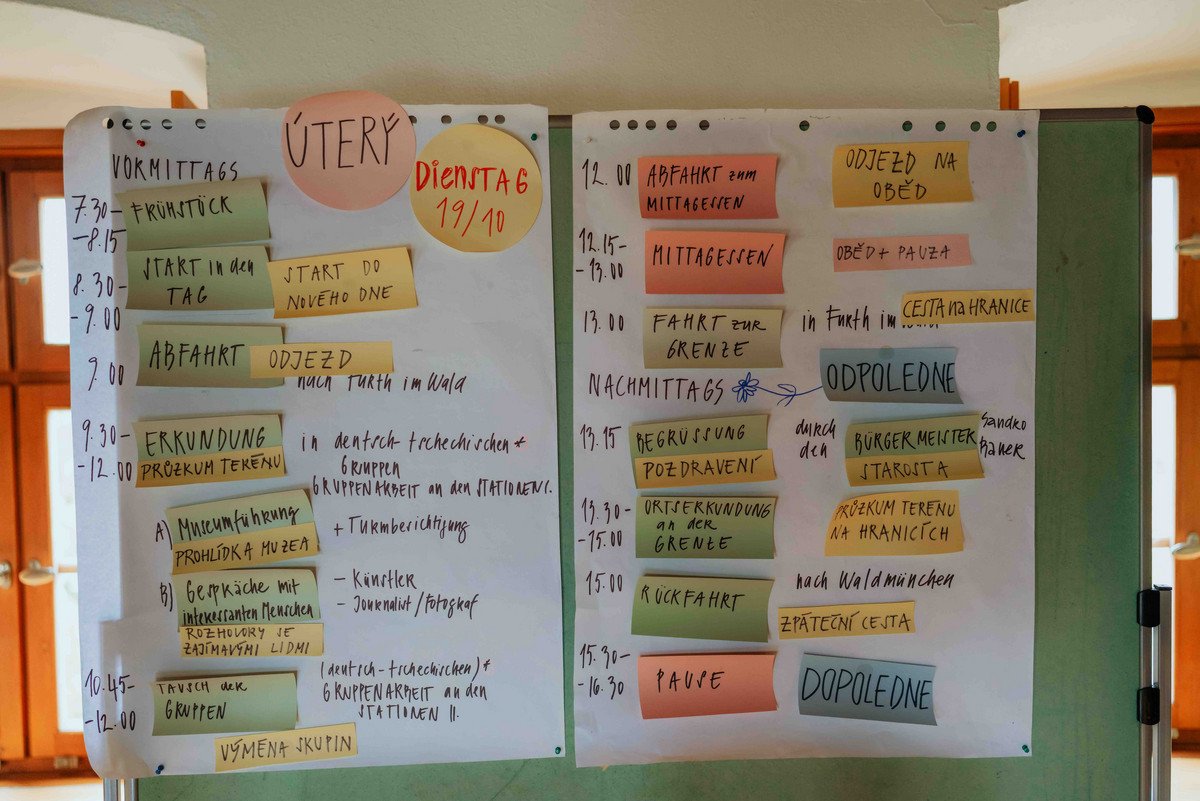 ÚTERÝ
DIENSTAG
19/10
VORMITTAGS
7.30-
-8.15
FRÜHSTÜCK
8.30-
-9.00
START in den
TAG
START DO
NOVÉHO DNE
9.00
ABFAHRT
ODJEZD
nach Furth im Wald
9.30-
-12.00
ERKUNDUNG
PRŮZKUM TERÉNU
in deutsch-tschechischen *
Gruppen
GRUPPENARBEIT an den STATIONEN I.
A)
Museumführung
PROHLÍDKA MUZEA
+ Turmberichtigung
B)
Gespräche mit
interessanten Menschen
ROZHOVORY SE
ZAJÍMAVÝMI LIDMI
- Künstler
- Journalist/Fotograf
10.45-
-12.00
TAUSCH der
GRUPPEN
(deutsch-tschechischen) *
GRUPPENARBEIT an den
STATIONEN II.
VÝMĚNA SKUPIN
12.00
ABFAHRT zum
MITTAGESSEN
ODJEZD NA
OBĚD
12.15-
-13.00
MITTAGESSEN
OBĚD + PAUZA
13.00
FAHRT zur
GRENZE
in Furth im Wald
CESTA na HRANICE
NACHMITTAGS
ODPOLEDNE
13.15
BEGRÜSSUNG
POZDRAVENÍ
durch
den
BÜRGERMEISTER
STAROSTA
Sandro
Bauer
13.30-
-15.00
ORTSERKUNDUNG
an der
GRENZE
PRŮZKUM TERÉNU
NA HRANICÍCH
15.00
RÜCKFAHRT
nach Waldmünchen
ZPÁTEČNÍ CESTA
15.30-
-16.30
PAUSE
DOPOLEDNE